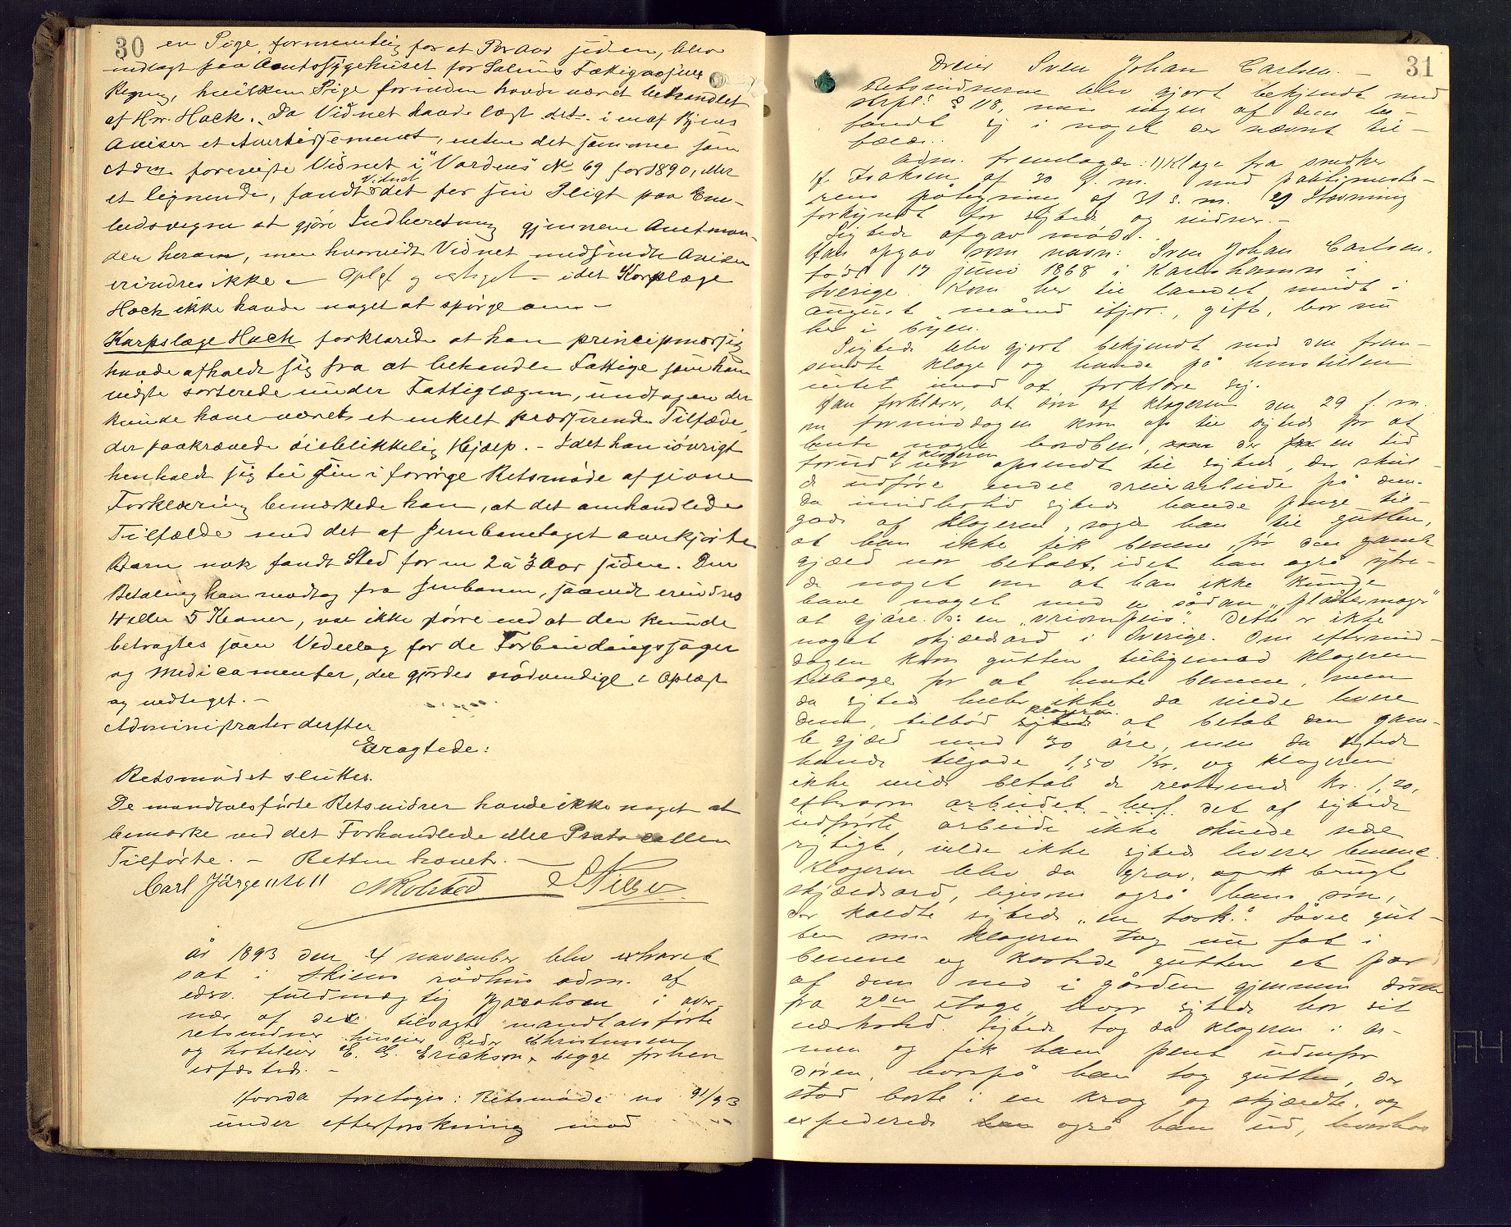 30
en Pige, formentlig for et Par Aar siden, blev
indlagt paa Amtssygehuset for Solums Fattigvæsens
Regning, hvilken Pige forinden havde været behandlet
af Hr. Hoch. Da Vidnet havde læst det i en af Byens
Aviser et Avertissement, enten det samme som
Adm foreviste Vidnet i "Varden" No 69 for 1890, eller
et lignende, fandt Vidnet det for sin Pligt paa Em-
bedsvegne at gjøre Indberetning gjennem Amtman-
den herom, men hvorvidt Vidnet medsendte Avisen
erindres ikke. Oplæst og vedtaget. idet Korpslæge
Hoch ikke havde noget at spørge om.
Korpslæge Hoch forklarede at han principmæssig
havde afholdt sig fra at behandle Fattige som han
vidste sorterede under Fattiglægen, undtagen der
kunde have været et enkelt presserende Tilfælde,
der paakrævede øieblikkelig Hjælp. - Idet han iøvrigt
henholdt sig til sin i forrige Retsmøde afgivne
Forklaring bemærkede han, at det omhandlede
Tilfælde med det af Jernbanetoget overkjørte
Barn nok fandt Sted for en 2 à 3 Aar siden. Den
Betaling han modtog fra Jernbanen, saavidt erindres
4 eller 5 Kroner, var ikke større end at den kunde
betragtes som Vederlag for de Forbindingssager
og Medicamenter, der gjordes nødvendige. Oplæst
og vedtaget. -
Administrator derefter
Eragtede:
Retsmødet sluttes.
De mandtalsførte Retsvidner havde ikke noget at
bemærke ved det Forhandlede eller Protocollen
Tilførte. - Retten hævet. -
Carl Jørgensen
År 1893 den 4 november blev extraret
sat i Skiens rådhus adm. af
edsv. fuldmægtig Jacobsen i over-
vær af de tilsagte mandtalsførte
retsvidner Peder Christensen
og hotelier E. G. Erickson, begge forhen
edfæstede. -
Hvorda foretoges: Retsmøde no 91/93
under efterforskning mod
31
Dreier Sven Johan Carlsen. -
Retsvidnerne blev gjort bekjendt med
strpl § 118, men ingen af dem be-
fandt sig i noget der nævnt til-
fælde.
Adm. fremlagde: 1) Klage fra snedker
Isaksen af 30 f. m. med politimeste-
rens påtegning af 31 s. m. og stævning
forkyndt for sigtede og vidner. -
Sigtede afgav møde.
Han opgav som navn: Sven Johan Carlsen,
født 17 juni 1868 i Karlshamn i
Sverige. Kom her til landet sidst i
august måned ifjor, gift, bor nu
her i byen.
Sigtede blev gjort bekjendt med den frem-
sendte klage og havde på henstillen
intet imod at forklare sig.
Han forklarer, at søn af klageren den 29 f. m.
om formiddagen kom op til sigtede for at
hente nogle bordben, der en tid
forud af klageren var opsendt til sigtede, der skul-
de udføre endel dreierarbeide på dem.
Da imidlertid sigtede havde penge til-
gode af klageren, sagde han til gutten,
at han ikke fik benene, før den gamle
gjæld var betalt, idet han også ytre-
de noget om at han ikke kunde
have noget med en sådan "plattemager"
at gjøre. Dette er ikke
noget skjældsord i Sverige. Om eftermid-
dagen kom gutten tilligemed klageren
tilbage for at hente benene, men
da sigtede heller ikke da vilde levere
dem, tilbød klageren at betale den gam-
le gjæld med 30 øre, men da sigtede
havde tilgode 1,50 Kr. og klageren
ikke vilde betale de resterende Kr. 1,20,
eftersom arbeidet det af sigtede
udførte arbeide ikke skulde være
rigtigt, vilde ikke sigtede levere benene.
Klageren blev da grov, og brugt
skjældsord, ligesom også hans søn,
der kaldte sigtede "en tosk". Såvel gut-
ten som klageren tog nu fat i
benene og kastede gutten et par
af dem ned i gården gjennem døren
fra 2den etage, hvor sigtede har sit
værksted. Sigtede tog da klageren i ar-
men og fik ham pent udenfor
døren, hvorpå han tog gutten, der
stod borte i en krog og skjændte, og
expederede også ham ud, hvorhos